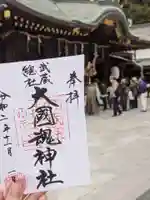 奉拝
武蔵
總社
大國魂神社
令和二年十二月一